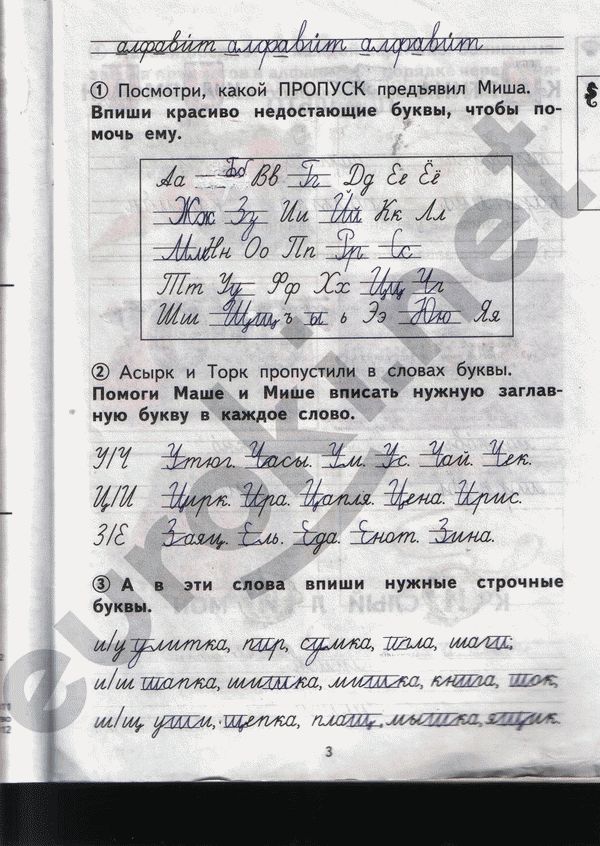 алфавит алфавит алфавит
1 Посмотри, какой ПРОПУСК предъявил Миша.
Впиши красиво недостающие буквы, чтобы по-
мочь ему.
Аа Бб Вв Гг Дд Ее Ёё
Жж Зз Ии Йй Кк Лл
Мм Нн Оо Пп Рр Сс
Тт Уу Фф Хх Цц Чч
Шш Щщ ъ ы ь Ээ Юю Яя
2 Асырк и Торк пропустили в словах буквы.
Помоги Маше и Мише вписать нужную заглав-
ную букву в каждое слово.
У/Ч Утюг. Часы. Ум. Ус. Чай. Чек.
Ц/И Цирк. Ира. Цапля. Цена. Ирис.
З/Е Заяц. Ель. Еда. Енот. Зина.
3 А в эти слова впиши нужные строчные
буквы.
и/у улитка, пир, сумка, игла, шаги,
и/ш шапка, шишка, мишка, книга, шок,
ш/щ уши, щепка, плащ, мышка, ящик.
3
euroki.net